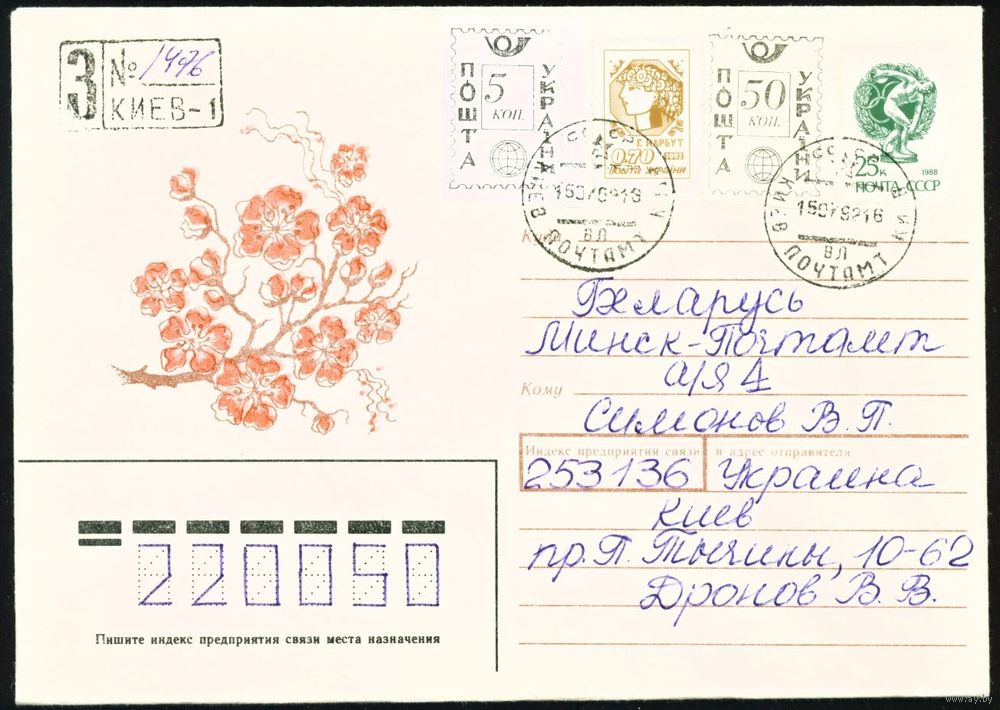 З № 1476
КИЕВ-1
ПОШТА 5 коп. УКРАЇНИ
Г. НАРБУТ
0,70
ПОШТА УКРАЇНИ
ПОШТА 50 коп. УКРАЇНИ
25к 1988
ПОЧТА СССР
КИЕВ ПОЧТАМТ
ВЛ
КИЕВ ПОЧТАМТ
ВЛ
Беларусь
Минск-Почтамт
а/я 4
Кому
Симонов В.П.
Индекс предприятия связи и адрес отправителя
253136 Украина
Киев
пр. П. Тычины, 10-62
Дронов В. В.
220050
Пишите индекс предприятия связи места назначения
www.ay.by